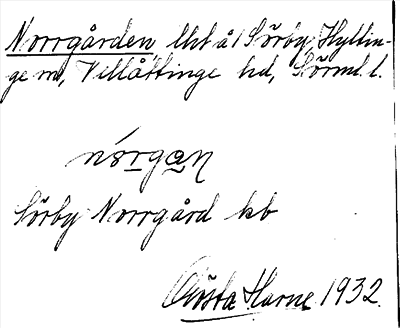 Norrgården, lht å 1 Sörby, Hyllin-
ge sn, Villåttinge hd, Sörml. l.
nórgan
Sörby Norrgård kb
Gösta Harne 1932.